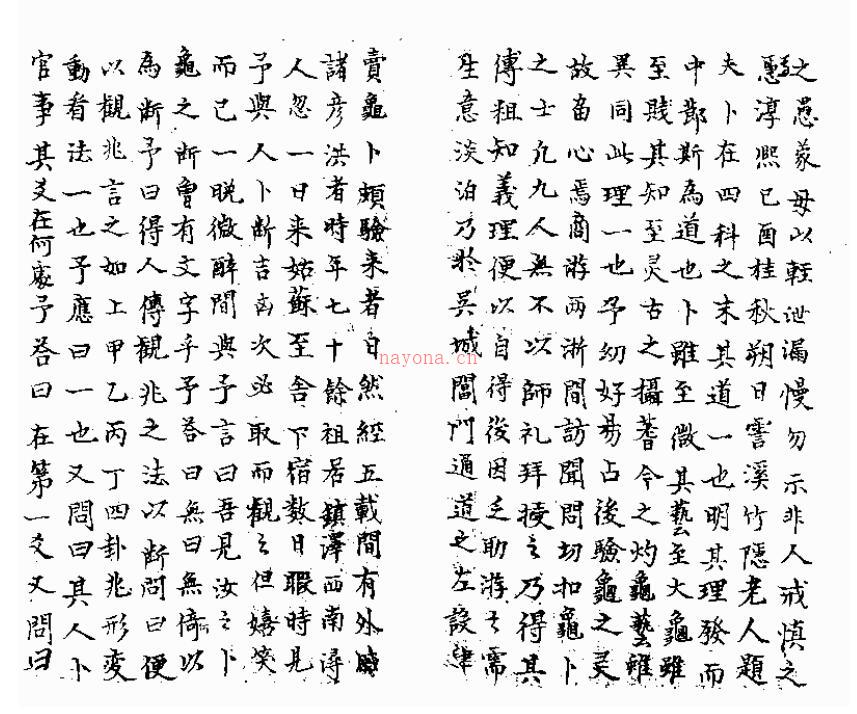 之愚蒙毋以輕泄漏慢勿示非人戒慎之
淳熈己酉桂秋朔日霅溪竹隱老人題
夫卜在四科之末其道一也明其理發而
中鄙斯為道也卜雖至微其藝至大龜雖
至賤其知至灵古之揲蓍今之灼龜藝雖
異同此理一也予幼好昜占後驗龜之灵
故畄心焉商游两浙間訪聞問切扣龜卜
之士凢九人無不以師礼拜授之乃得其
傳粗知義理便以自得後因乏助游之需
生意淡泊乃扵吴城閶門通道之左設肆
賣龜卜頗驗来者日然經五載間有外戚
諸彦洪者時年七十餘祖居鎮澤西南得
人忽一日来姑蘇至舎下宿数日暇時見
予與人卜断吉凶次必取而觀之但嬉笑
而已一晩微醉間與予言曰吾見汝之卜
龜之断曽有文字乎予荅曰無曰無倚以
為断予曰得人傳觀兆之法以断問曰便
以觀兆言之如上甲乙丙丁四卦兆形变
動者法一也予應曰一也又問曰其人卜
官事其爻在何處予荅曰在第一爻又問曰
nayona.cn